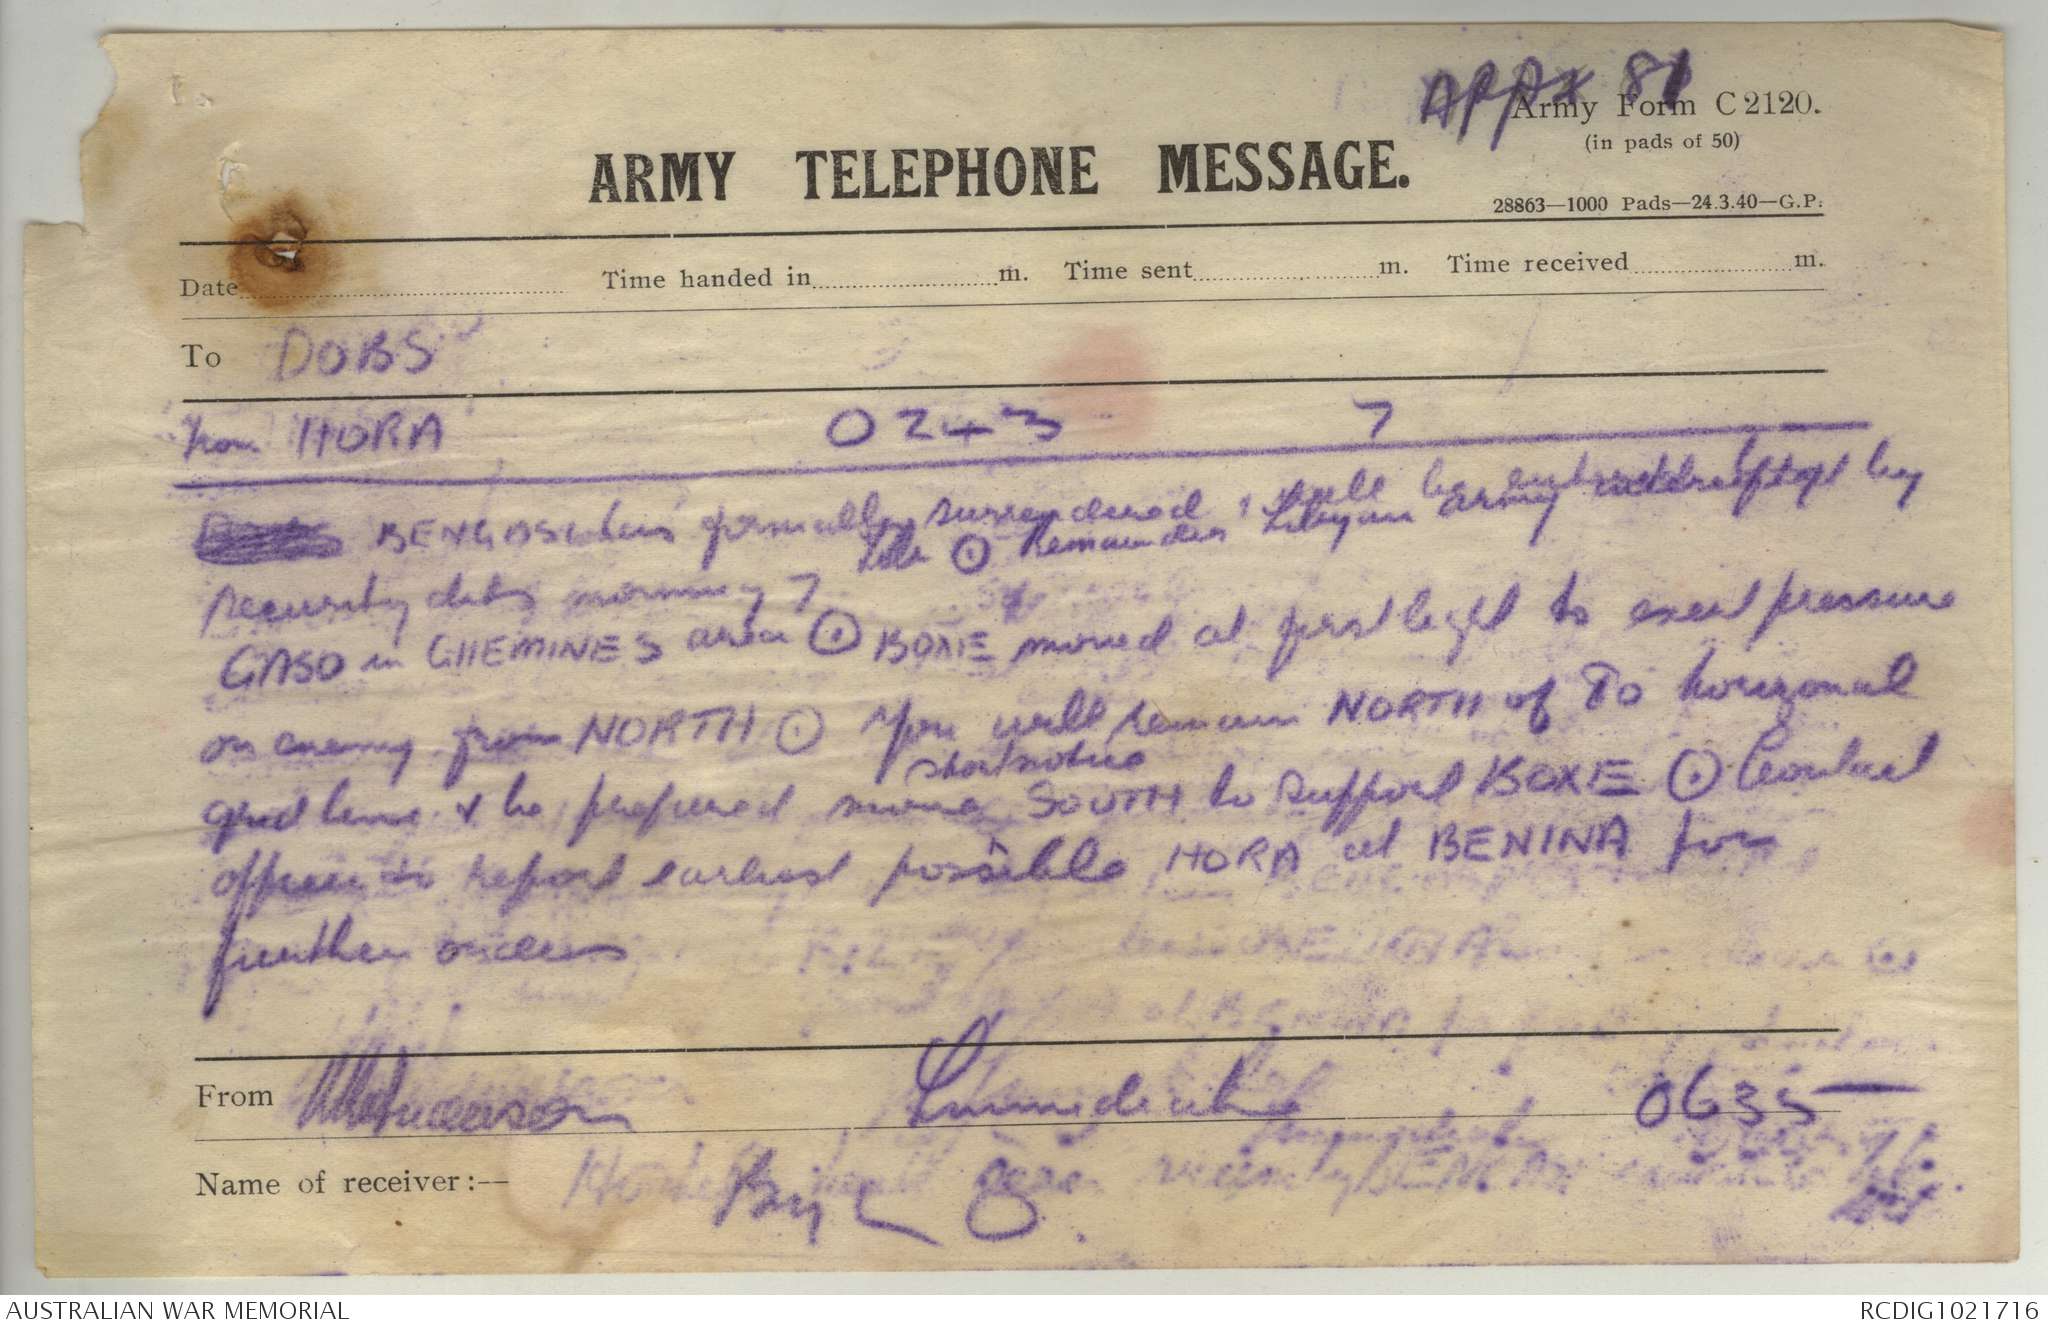 APPX 81
Army Form C 2120.
(in pads of 50)
ARMY TELEPHONE MESSAGE.
28863—1000 Pads—24.3.40—G.P.
Date Time handed in m. Time sent m. Time received m.
To DOBS
From HORA 0243 7
BENGASI has formally surrendered & will be by
security dets morning 7 ⊙ Remainder Libyan army
GASO in GHEMINES area ⊙ BOXE moved at first light to exert pressure
on enemy from NORTH ⊙ You will remain NORTH of 80 horizontal
short notice
grid line & be prepared move SOUTH to support BOXE ⊙ Contact
officer to report earliest possible HORA at BENINA for
further orders
From Immediate 0635
Name of receiver:—